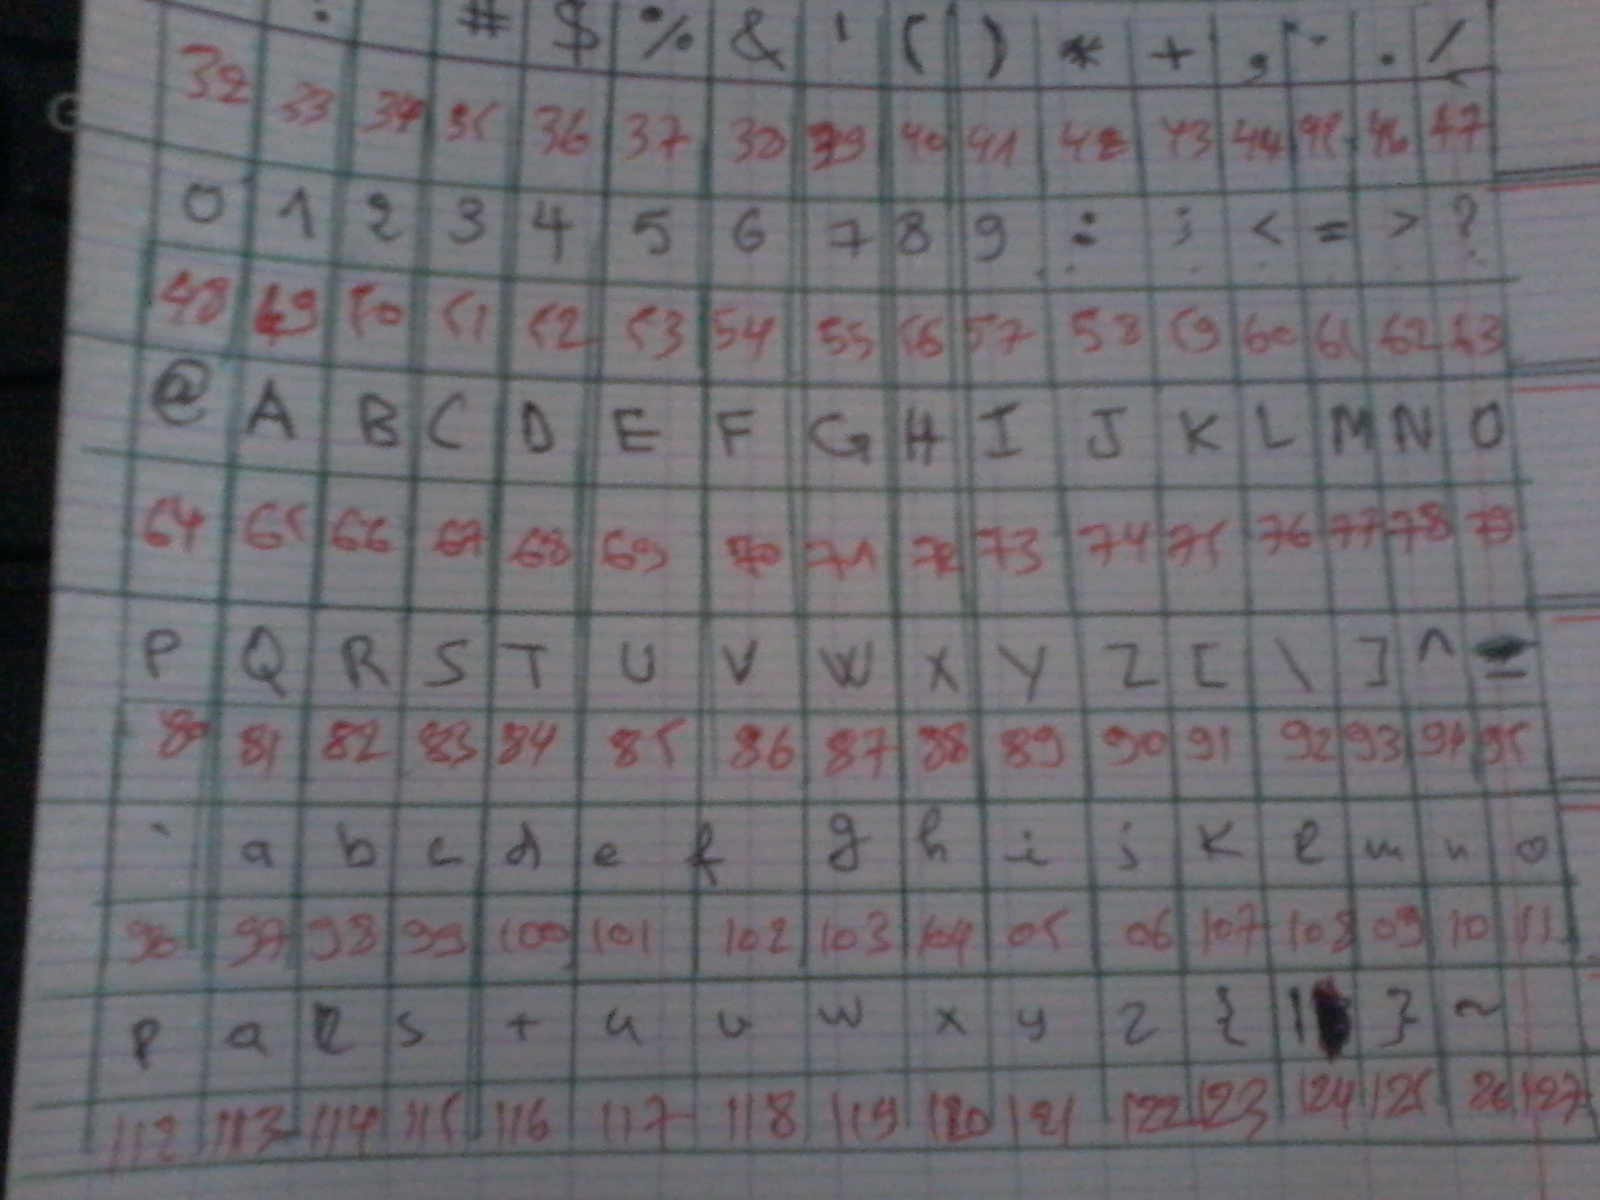 # $ % & ' ( ) * + , - . /
32 33 34 35 36 37 38 39 40 41 42 43 44 45 46 47
0 1 2 3 4 5 6 7 8 9 : ; < = > ?
48 49 50 51 52 53 54 55 56 57 58 59 60 61 62 63
@ A B C D E F G H I J K L M N O
64 65 66 67 68 69 70 71 72 73 74 75 76 77 78 79
P Q R S T U V W X Y Z [ \ ] ^ _
80 81 82 83 84 85 86 87 88 89 90 91 92 93 94 95
` a b c d e f g h i j k l m n o
96 97 98 99 100 101 102 103 104 05 06 107 108 09 10 11
p q r s t u v w x y z { | } ~
112 113 114 115 116 117 118 119 120 121 122 123 124 125 26 127